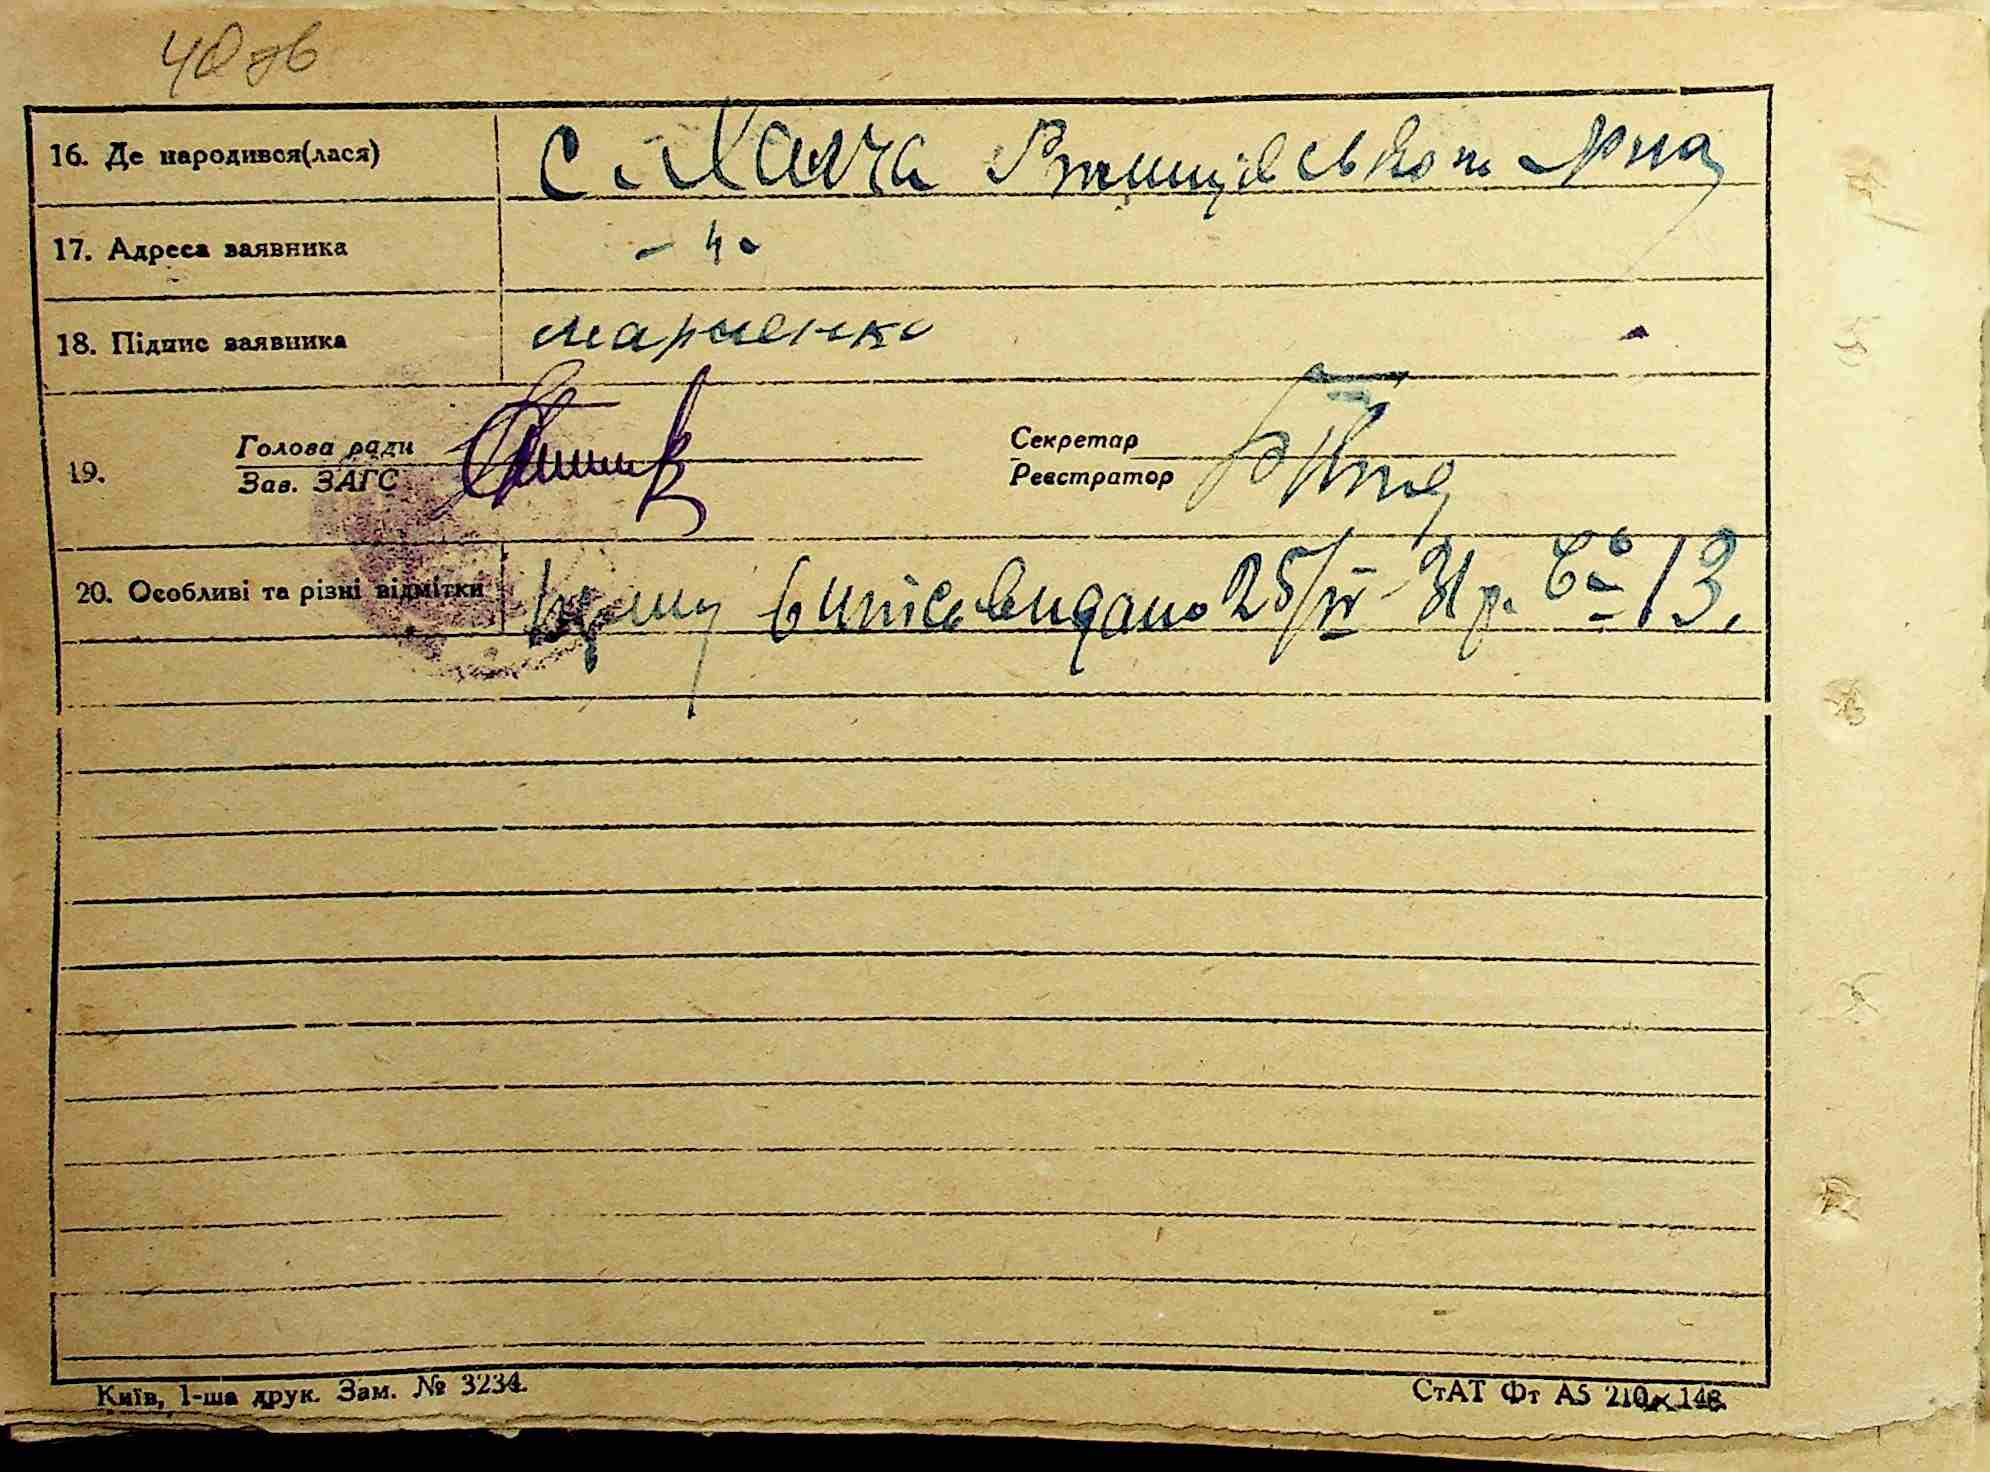 40 зв
16. Де народився(лася) с. Халча Ржищівського р-на
17. Адреса заявника - ч -
18. Підпис заявника Марченко
19. Голова ради Секретар
Зав. ЗАГС Реєстратор
20. Особливі та різні відмітки випись видано 25/IV-31 р. 13.
Київ, 1-ша друк. Зам. № 3234. СтАТ Фт А5 210 x 148